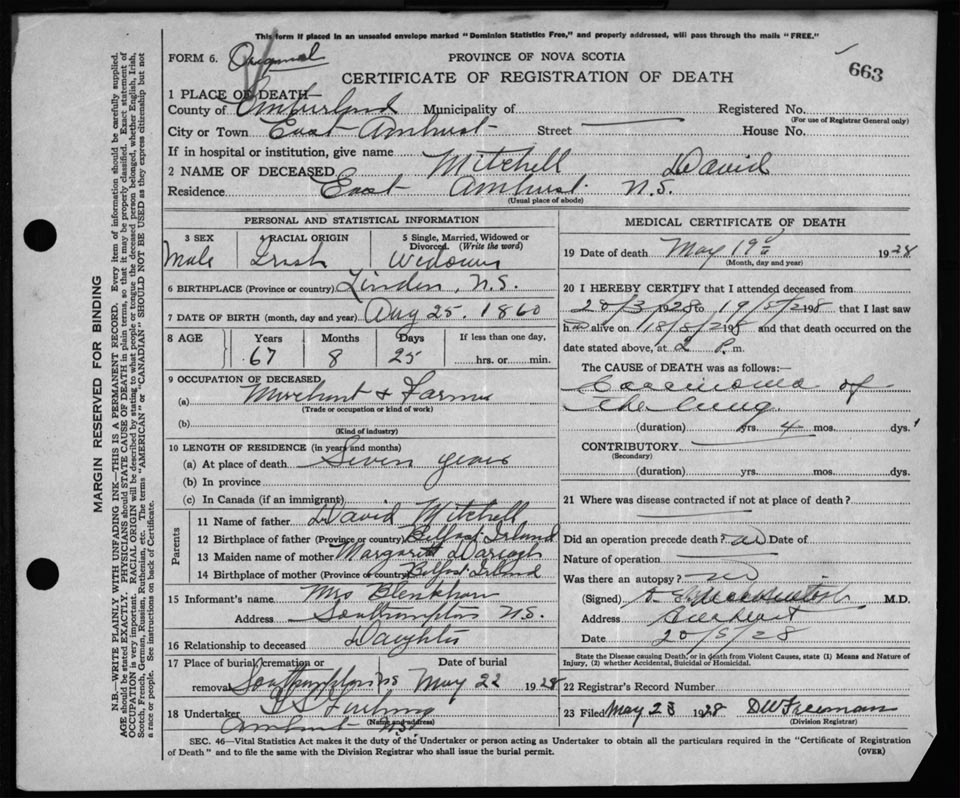 This form if placed in an unsealed envelope marked "Dominion Statistics Free," and properly addressed, will pass through the mails "FREE."
FORM 6. Original PROVINCE OF NOVA SCOTIA 663
CERTIFICATE OF REGISTRATION OF DEATH
1 PLACE OF DEATH—
County of Cumberland Municipality of Registered No.
(For use of Registrar General only)
City or Town East Amherst Street House No.
If in hospital or institution, give name
2 NAME OF DECEASED Mitchell David
Residence East Amherst N.S.
(Usual place of abode)
PERSONAL AND STATISTICAL INFORMATION
3 SEX Male
4 RACIAL ORIGIN Irish
5 Single, Married, Widowed or Divorced. (Write the word) Widower
6 BIRTHPLACE (Province or country) Linden, N.S.
7 DATE OF BIRTH (month, day and year) Aug 25. 1860
8 AGE Years Months Days If less than one day,
67 8 25 hrs. or min.
9 OCCUPATION OF DECEASED
(a) Merchant & Farmer
(Trade or occupation or kind of work)
(b)
(Kind of industry)
10 LENGTH OF RESIDENCE (in years and months)
(a) At place of death Seven years
(b) In province
(c) In Canada (if an immigrant)
Parents
11 Name of father David Mitchell
12 Birthplace of father (Province or country) Belfast Ireland
13 Maiden name of mother Margaret
14 Birthplace of mother (Province or country) Belfast Ireland
15 Informant's name Mrs Blenkhorn
Address Southampton N.S.
16 Relationship to deceased Daughter
17 Place of burial, cremation or Date of burial
removal Southampton NS May 22 1928
18 Undertaker
(Name and address)
Amherst N.S.
MEDICAL CERTIFICATE OF DEATH
19 Date of death May 19 1928
(Month, day and year)
20 I HEREBY CERTIFY that I attended deceased from
20/3/1928 to 19/5/1928 that I last saw
h alive on 18/5/1928 and that death occurred on the
date stated above, at 2 P. m.
The CAUSE of DEATH was as follows:—
Carcinoma of
the lung
(duration) yrs. 4 mos. dys.
CONTRIBUTORY
(Secondary)
(duration) yrs. mos. dys.
21 Where was disease contracted if not at place of death?
Did an operation precede death? no Date of
Nature of operation
Was there an autopsy? no
(Signed) M.D.
Address Amherst
Date 20/5/28
State the Disease causing Death, or in death from Violent Causes, state (1) Means and Nature of
Injury, (2) whether Accidental, Suicidal or Homicidal.
22 Registrar's Record Number
23 Filed May 23 1928 D W Freeman
(Division Registrar)
SEC. 46—Vital Statistics Act makes it the duty of the Undertaker or person acting as Undertaker to obtain all the particulars required in the "Certificate of Registration
of Death" and to file the same with the Division Registrar who shall issue the burial permit. (OVER)
MARGIN RESERVED FOR BINDING
N.B.—WRITE PLAINLY WITH UNFADING INK—THIS IS A PERMANENT RECORD. Every item of information should be carefully supplied.
AGE should be stated EXACTLY. PHYSICIANS should STATE CAUSE OF DEATH in plain terms, so that it may be properly classified. Exact statement of
OCCUPATION is very important. RACIAL ORIGIN will be described by stating to what people or tongue the deceased person belonged, whether English, Irish,
Scotch, French, German, Russian, Ruthenian, etc. The terms "AMERICAN" or "CANADIAN" SHOULD NOT BE USED as they express citizenship but not
a race or people. See instructions on back of Certificate.